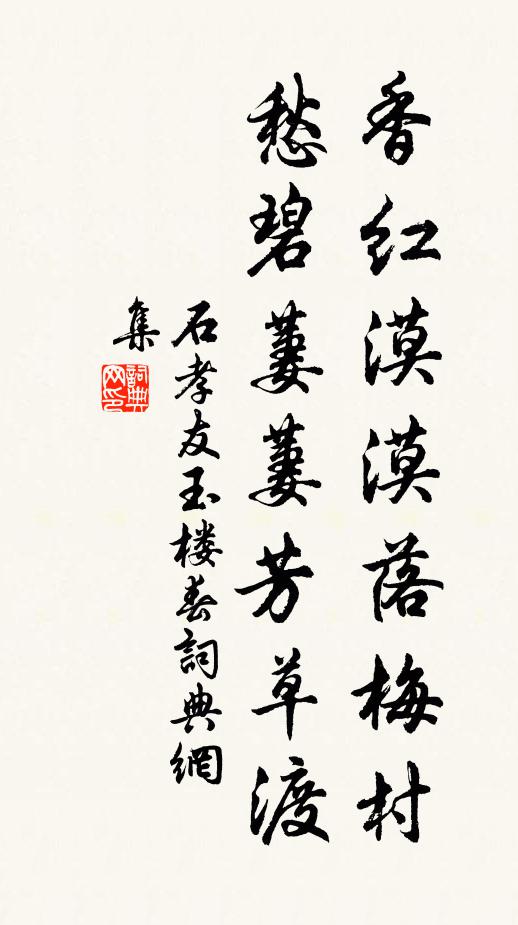 香红漠漠落梅村
愁碧萋萋芳草渡
石孝友玉楼春詞典網
集
詞典网印